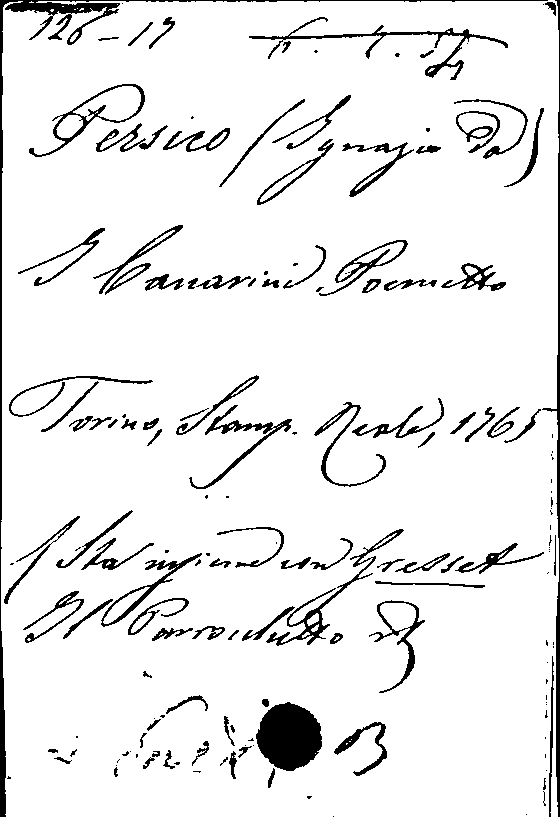 126-17
Persico (Ignazio Da)
I Canarini. Poemetto
Torino, Stamp. Reale, 1765
(Sta insieme con Gresset
Il Parrocchetto
B